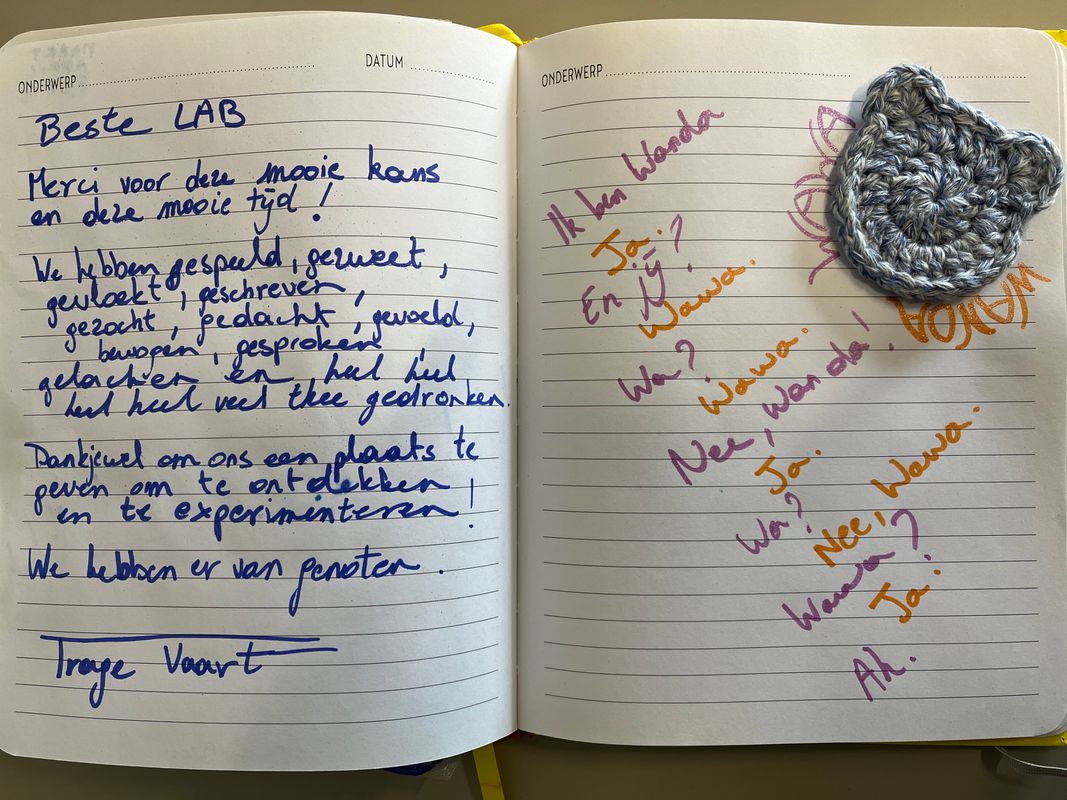 ONDERWERP
DATUM
Beste LAB
Merci voor deze mooie kans
en deze mooie tijd!
We hebben gespeeld, gezweet,
gevloekt, geschreven,
gezocht, gedacht, gevoeld,
bewogen, gesproken,
gelachen en heel heel
heel heel veel thee gedronken.
Dankjewel om ons een plaats te
geven om te ontdekken
en te experimenteren!
We hebben er van genoten.
Trage Vaart
ONDERWERP
Ik ben Wanda
Ja.
En jij?
Wawa.
Wa?
Wawa.
Nee, Wanda!
Ja.
Wa?
Nee, Wawa.
Wawa?
Ja.
Ah.